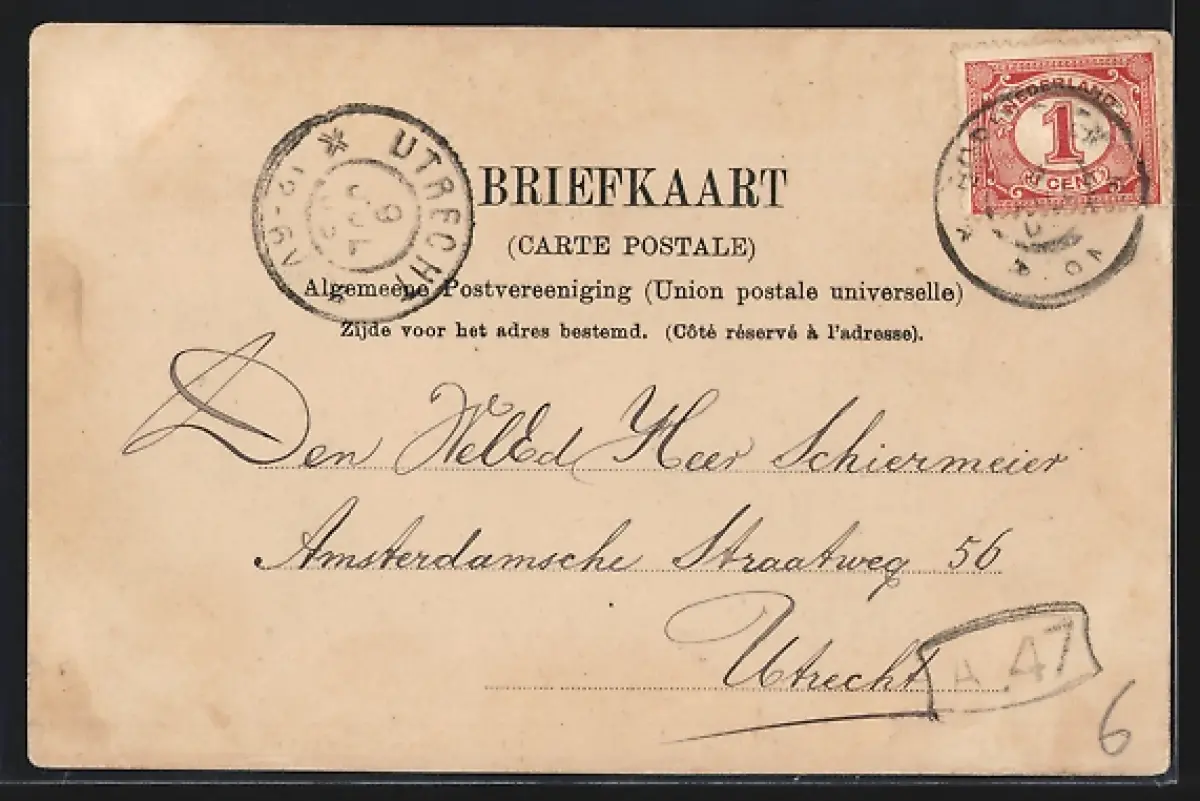 NEDERLAND
1
(1 CENT)
UTRECHT
BRIEFKAART
(CARTE POSTALE)
Algemeene Postvereeniging (Union postale universelle)
Zijde voor het adres bestemd. (Côté réservé à l'adresse).
Den WelEd Heer Schiermeier
Amsterdamsche Straatweg 56
Utrecht
A 47
6